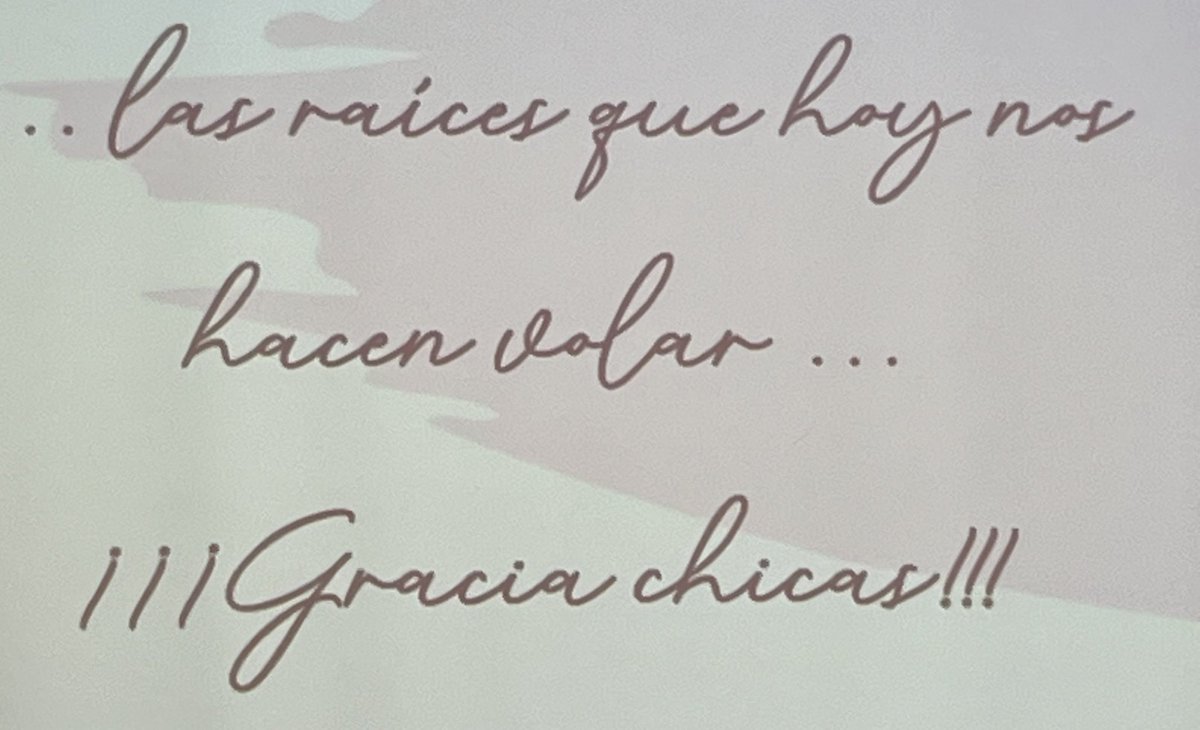 ..las raíces que hoy nos
hacen volar ...
¡¡¡Gracia chicas!!!